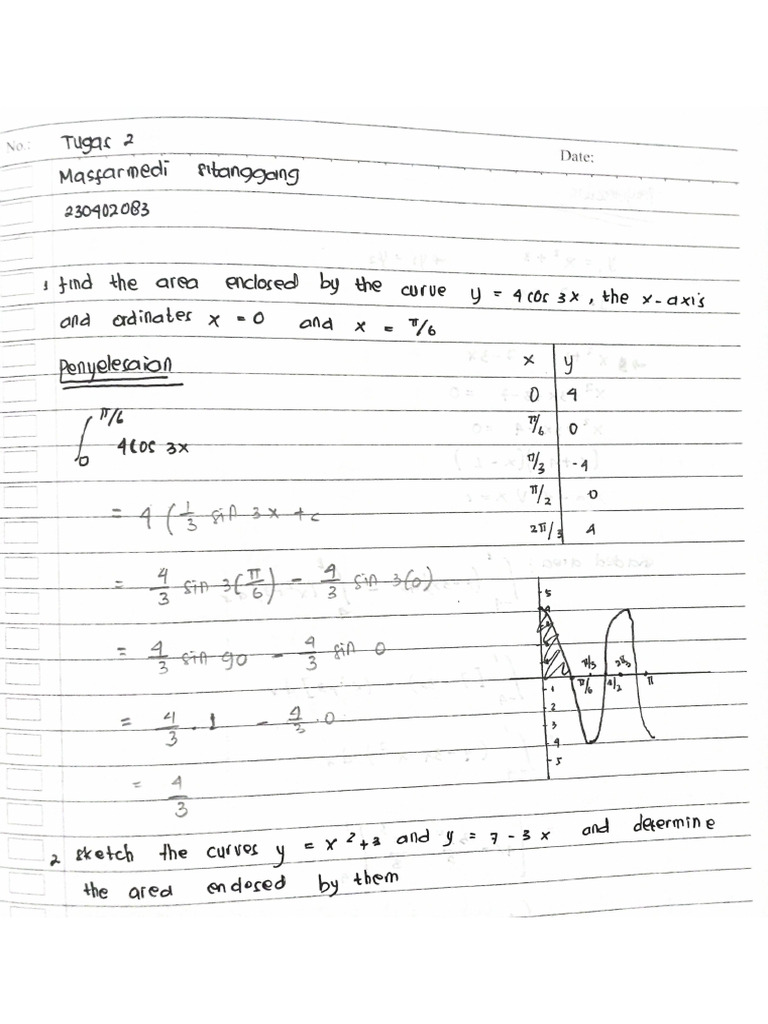 No.: Tugas 2
Date:
Masfarmedi Sitanggang
230402083
1 find the area enclosed by the curve y = 4 cos 3x, the x-axis
and ordinates x = 0 and x = π/6
Penyelesaian
x y
0 4
π/6 0
π/3 -4
π/2 0
2π/3 4
∫ 0 π/6 4 cos 3x
= 4 ( 1/3 sin 3x + c
= 4/3 sin 3(π/6) - 4/3 sin 3(0)
= 4/3 sin 90 - 4/3 sin 0
= 4/3 . 1 - 4/3 . 0
= 4/3
5
π/3 2π/3
π/6 π/2 π
1
2
3
4
5
2 sketch the curves y = x²+3 and y = 7 - 3x and determine
the area enclosed by them